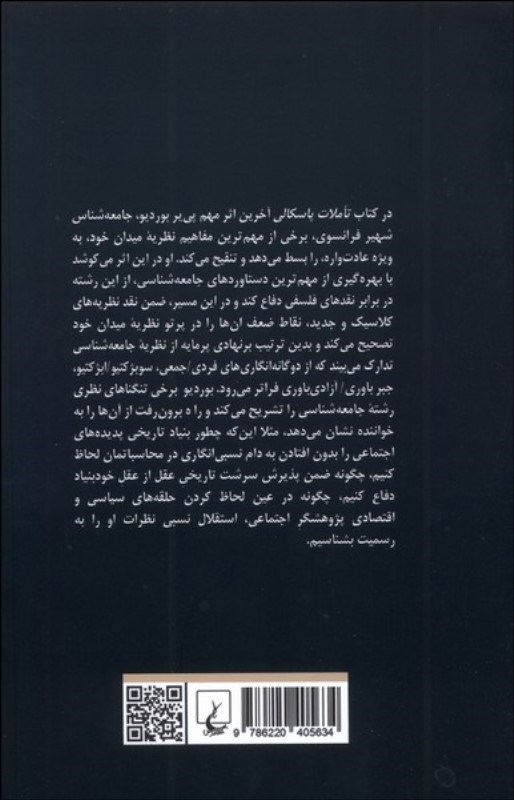 در کتاب تأملات پاسکالی آخرین اثر مهم پی‌یر بوردیو، جامعه‌شناس
شهیر فرانسوی، برخی از مهم‌ترین مفاهیم نظریهٔ میدان خود، به
ویژه عادت‌واره، را بسط می‌دهد و تنقیح می‌کند. او در این اثر می‌کوشد
با بهره‌گیری از مهم‌ترین دستاوردهای جامعه‌شناسی، از این رشته
در برابر نقدهای فلسفی دفاع کند و در این مسیر، ضمن نقد نظریه‌های
کلاسیک و جدید، نقاط ضعف آن‌ها را در پرتو نظریهٔ میدان خود
تصحیح می‌کند و بدین ترتیب برنهادی پرمایه از نظریهٔ جامعه‌شناسی
تدارک می‌بیند که از دوگانه‌انگاری‌های فردی/جمعی، سوبژکتیو/ابژکتیو،
جبریاوری/ آزادی‌باوری فراتر می‌رود. بوردیو برخی تنگناهای نظری
رشتهٔ جامعه‌شناسی را تشریح می‌کند و راه برون‌رفت از آن‌ها را به
خواننده نشان می‌دهد، مثلا این‌که چطور بنیاد تاریخی پدیده‌های
اجتماعی را بدون افتادن به دام نسبی‌انگاری در محاسباتمان لحاظ
کنیم، چگونه ضمن پذیرش سرشت تاریخی عقل از عقل خودبنیاد
دفاع کنیم، چگونه در عین لحاظ کردن حلقه‌های سیاسی و
اقتصادی پژوهشگر اجتماعی، استقلال نسبی نظرات او را به
رسمیت بشناسیم.
9 786220 405634